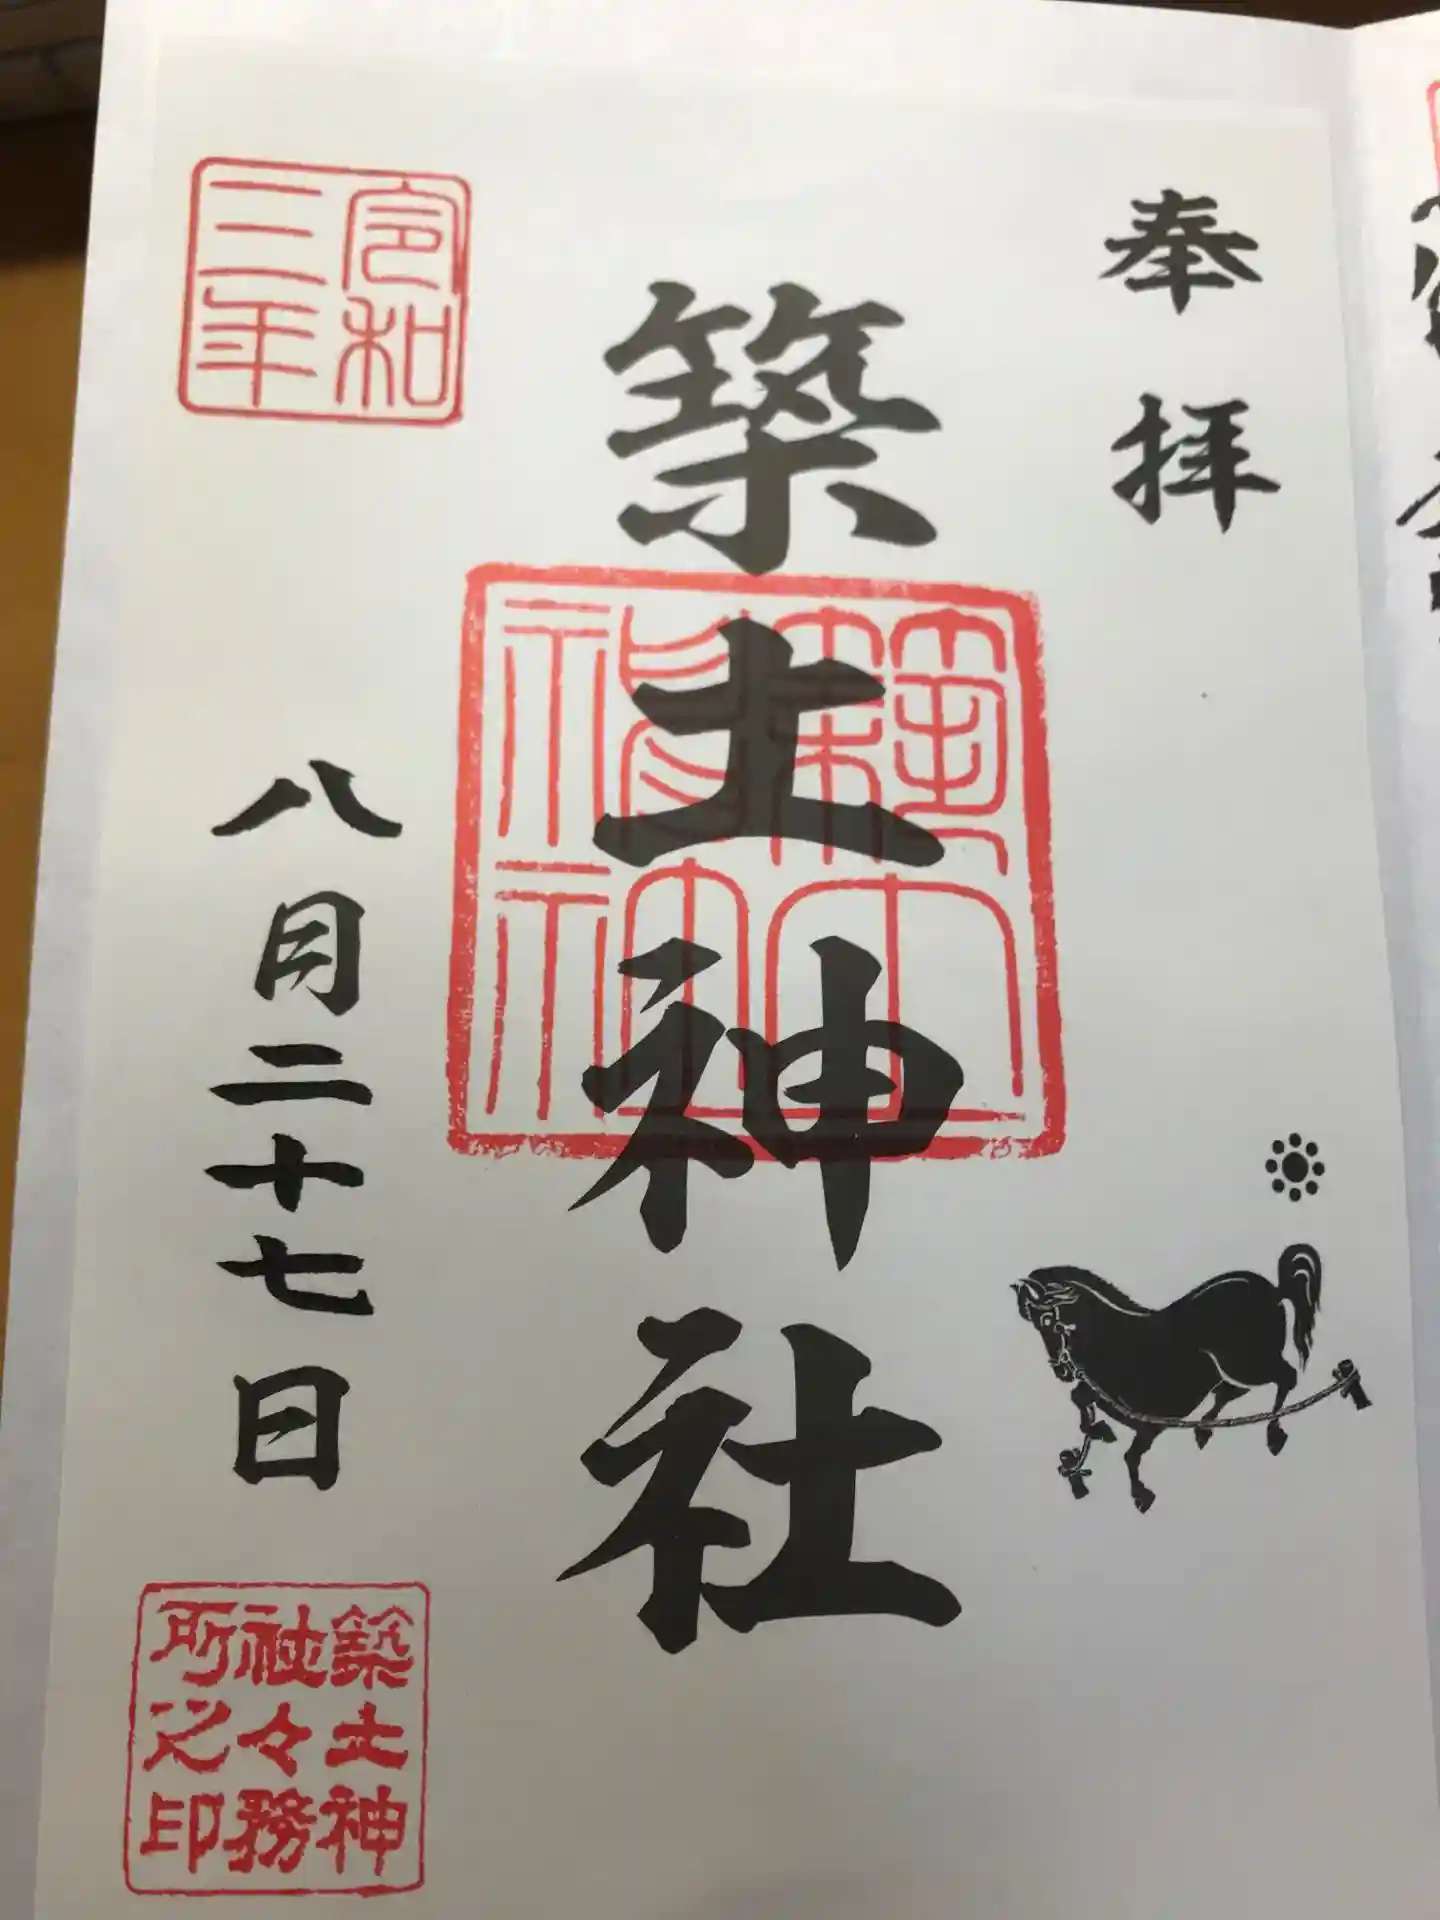 奉拝
築土神社
令和
三年
八月二十七日
築土神
社々務
所之印